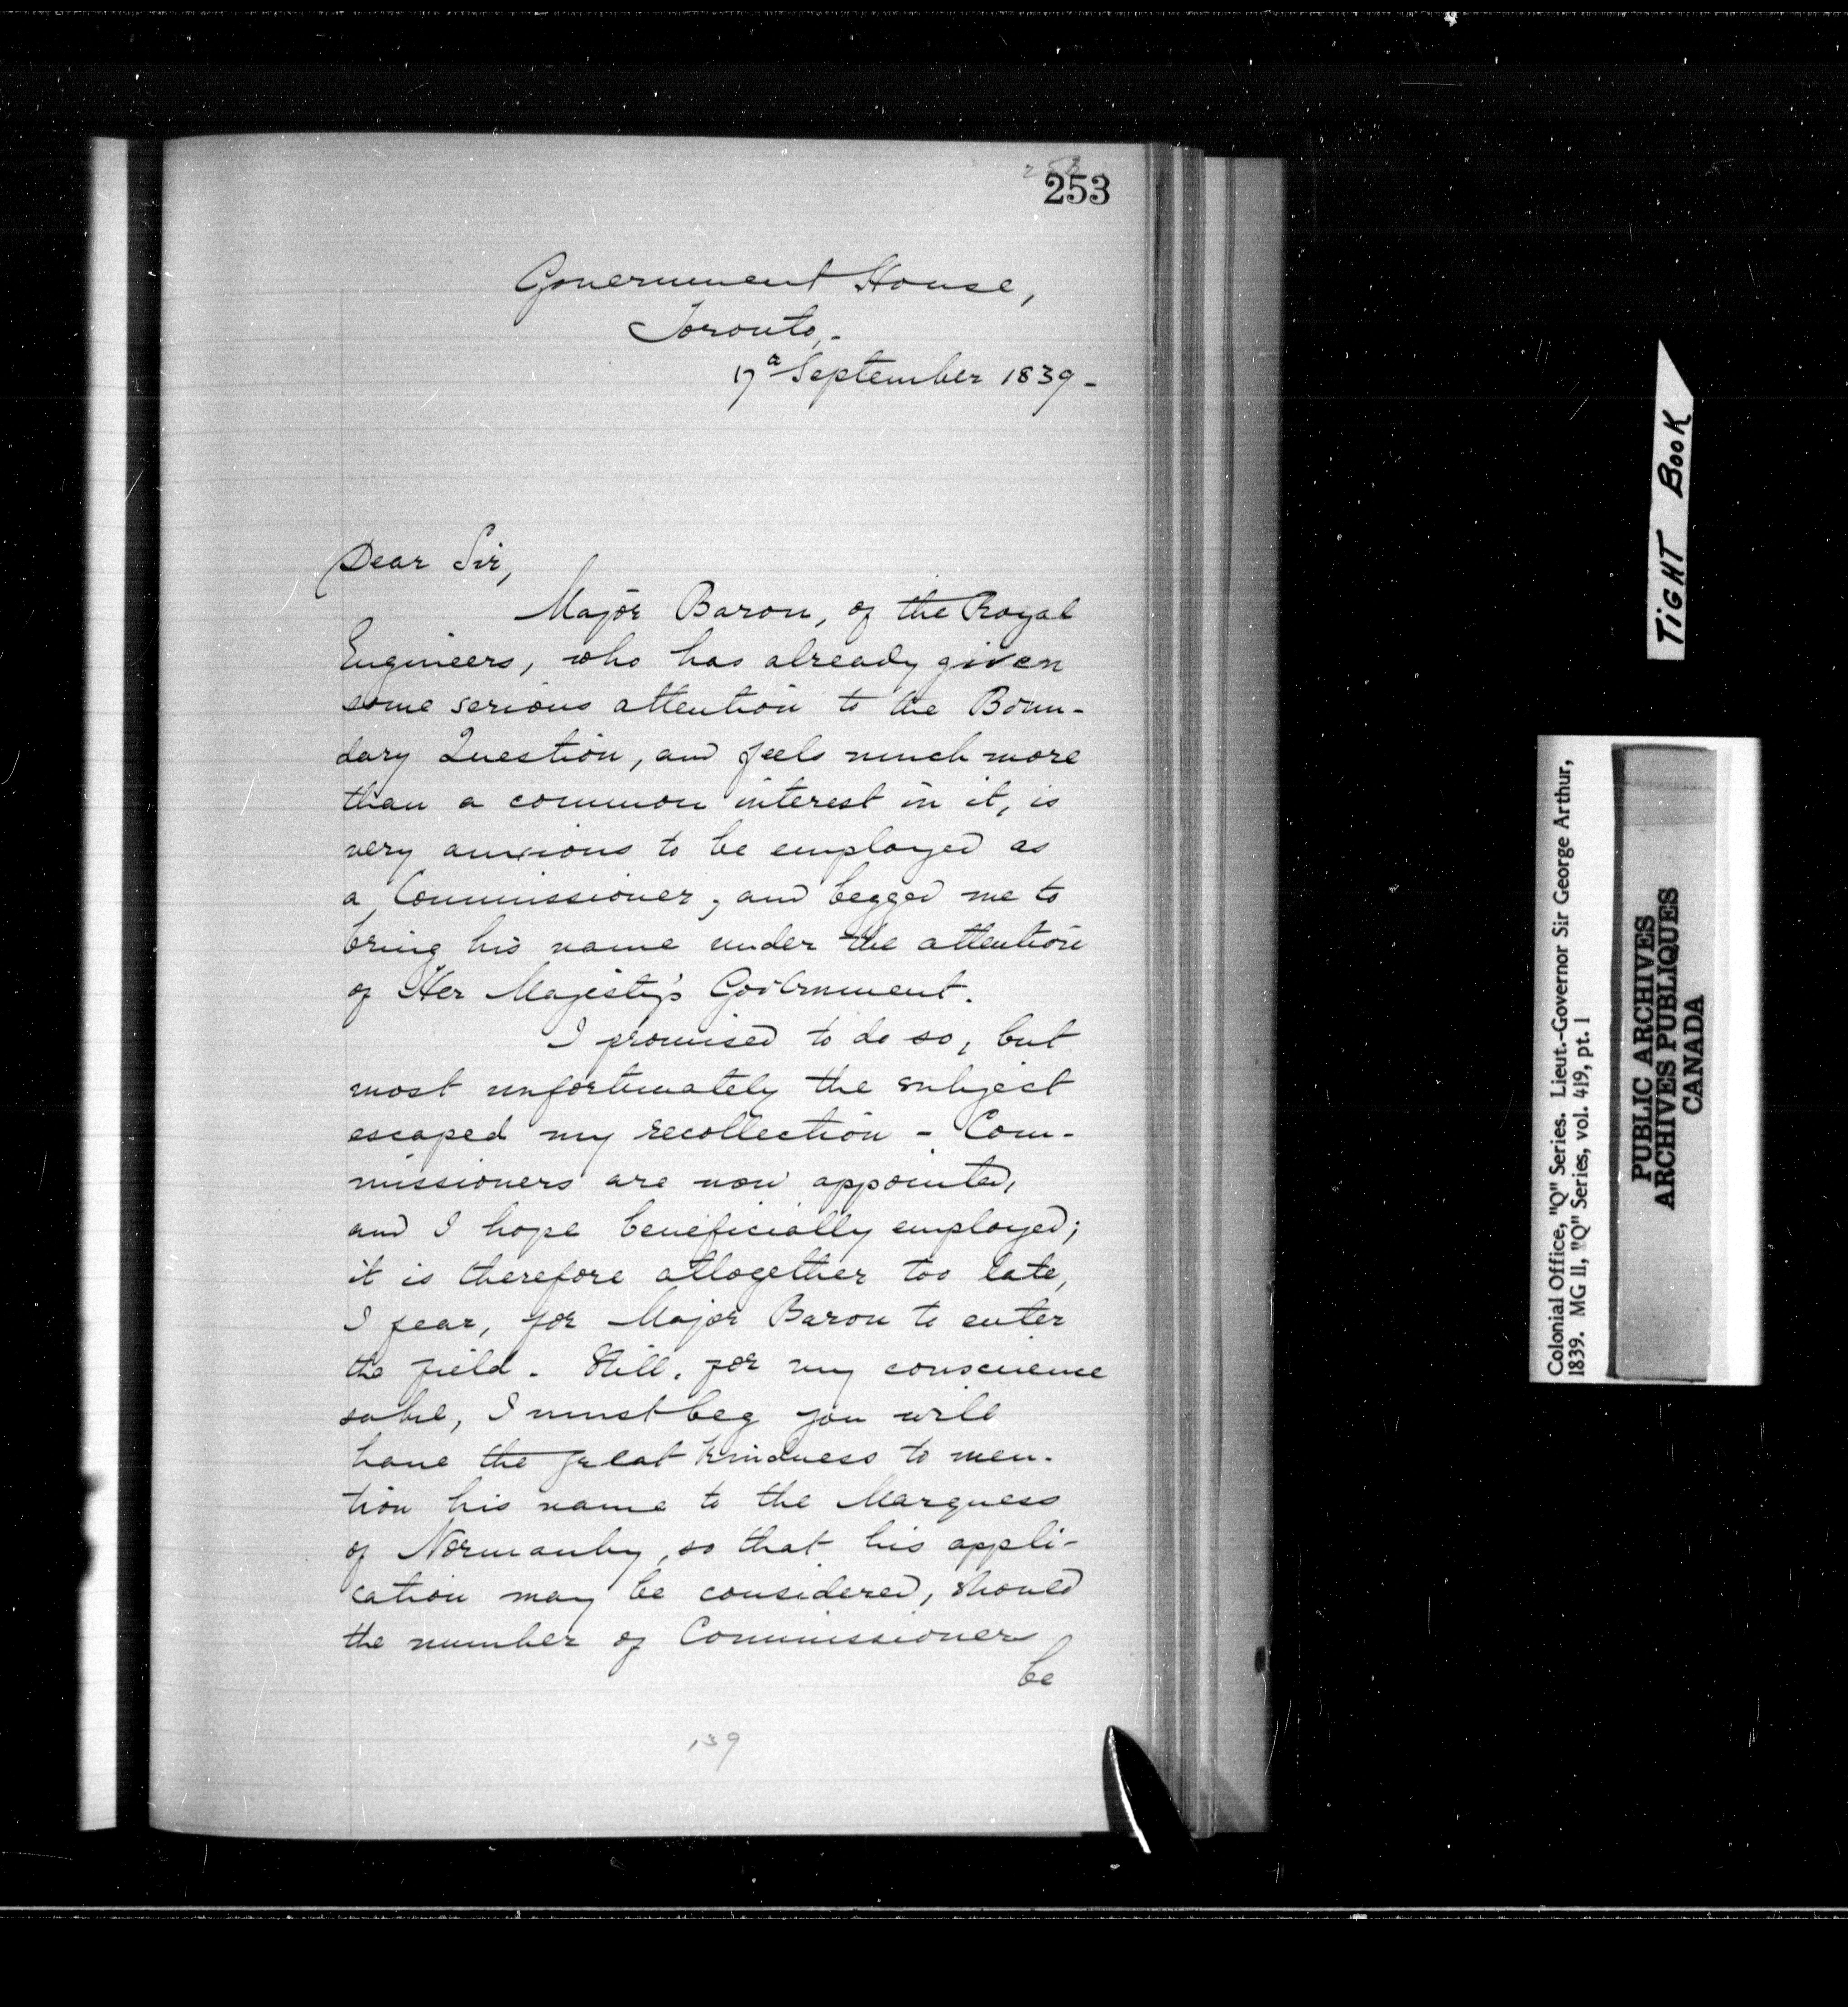 253
Government House,
Toronto,-
September 1839-
Dear Sir,
Major Baron, of the Royal
Engineers, who has already given
some serious attention to the Boun-
dary Question, and feels much more
than a common interest in it, is
very anxious to be employed as
a Commissioner, and begged me to
bring his name under the attention
of Her Majesty's Government.
I promised to do so, but
most unfortunately the subject
escaped my recollection - Com-
missioners are now appointed,
and I hope beneficially employed;
it is therefore altogether too late,
I fear, for Major Baron to enter
the field. Still, for my conscience
sake, I must beg you will
have the great kindness to men-
tion his name to the Marquess
of Normanby, so that his appli-
cation may be considered, should
the number of Commissioners
be
139
TIGHT BOOK
Colonial Office, "Q" Series. Lieut.-Governor Sir George Arthur,
1839. MG 11, "Q" Series, vol. 419, pt. 1
PUBLIC ARCHIVES
ARCHIVES PUBLIQUES
CANADA